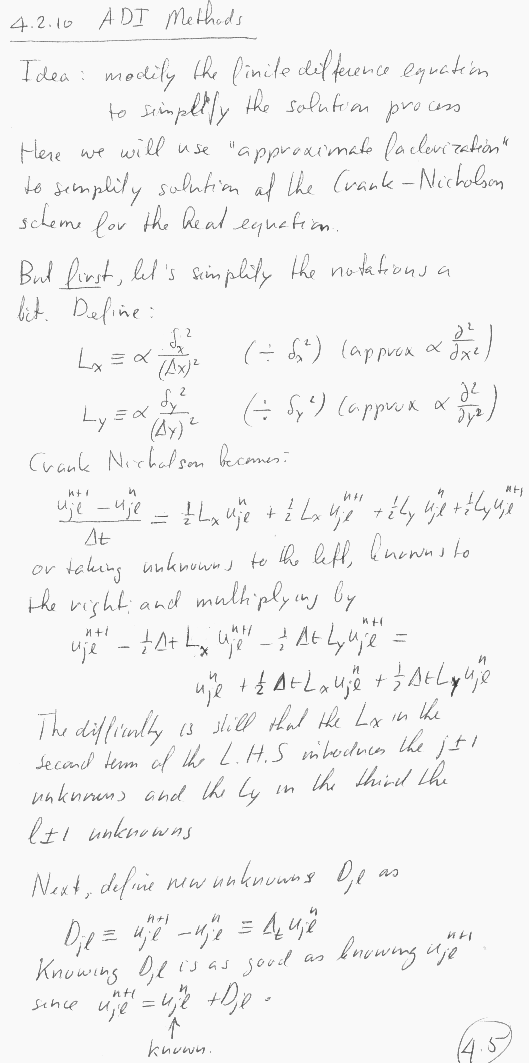 4.2.10 ADI Methods
Idea: modify the finite difference equation
to simplify the solution process
Here we will use "approximate factorization"
to simplify solution of the Crank-Nicholson
scheme for the heat equation.
But first, let's simplify the notations a
bit. Define:
Lₓ ≡ α δₓ²/(Δx)² (÷ δₓ²) (approx α ∂²/∂x²)
L_y ≡ α δ_y²/(Δy)² (÷ δ_y²) (approx α ∂²/∂y²)
Crank Nicholson becomes:
(u_jℓ^{n+1} - u_jℓ^n)/Δt = ½ Lₓ u_jℓ^n + ½ Lₓ u_jℓ^{n+1} + ½ L_y u_jℓ^n + ½ L_y u_jℓ^{n+1}
or taking unknowns to the left, knowns to
the right, and multiplying by
u_jℓ^{n+1} - ½ Δt Lₓ u_jℓ^{n+1} - ½ Δt L_y u_jℓ^{n+1} =
u_jℓ^n + ½ Δt Lₓ u_jℓ^n + ½ Δt L_y u_jℓ^n
The difficulty is still that the Lx in the
second term of the L.H.S introduces the j±1
unknowns and the Ly in the third the
ℓ±1 unknowns
Next, define new unknowns D_jℓ as
D_jℓ ≡ u_jℓ^{n+1} - u_jℓ^n ≡ Δ_t u_jℓ^n
Knowing D_jℓ is as good as knowing u_jℓ^{n+1}
since u_jℓ^{n+1} = u_jℓ^n + D_jℓ.
↑
known.
4.5